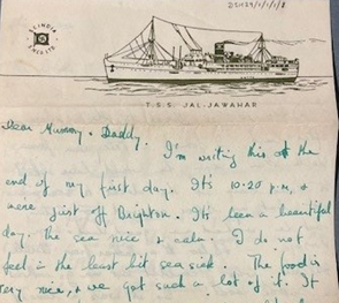 T.S.S. JAL-JAWAHAR
Dear Mummy & Daddy.
I'm writing this at the
end of my first day. It's 10.20 p.m, &
were just off Brighton. It's been a beautiful
day. The sea nice & calm. I do not
feel in the least bit sea sick. The food is
very nice, & we got such a lot of it. It